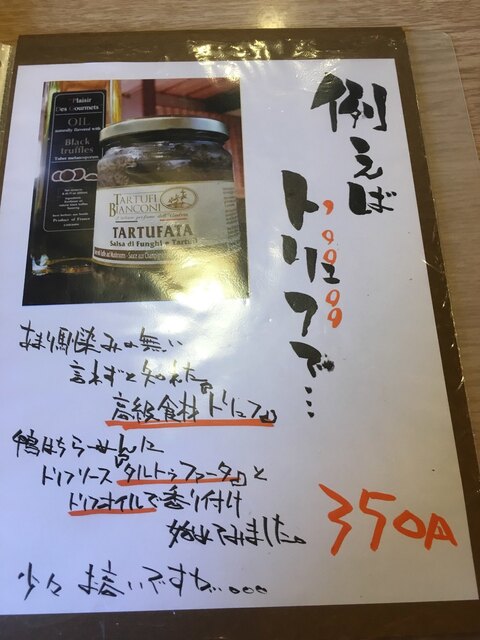 例えば
トリュフで…
Plaisir
Des Gourmets
OIL
naturally flavored with
Black
truffles
Tuber melanosporum
TARTUFI
BIANCONI
TARTUFATA
Salsa di Funghi e Tartufi
お馴染みの無い
言わずと知れた
高級食材『トリュフ』
鴨はちらーめんに
トリフソース『タルトゥファータ』と
トリフオイルで香り付け
始めてみました。
350円
少々お高いですが…。。。